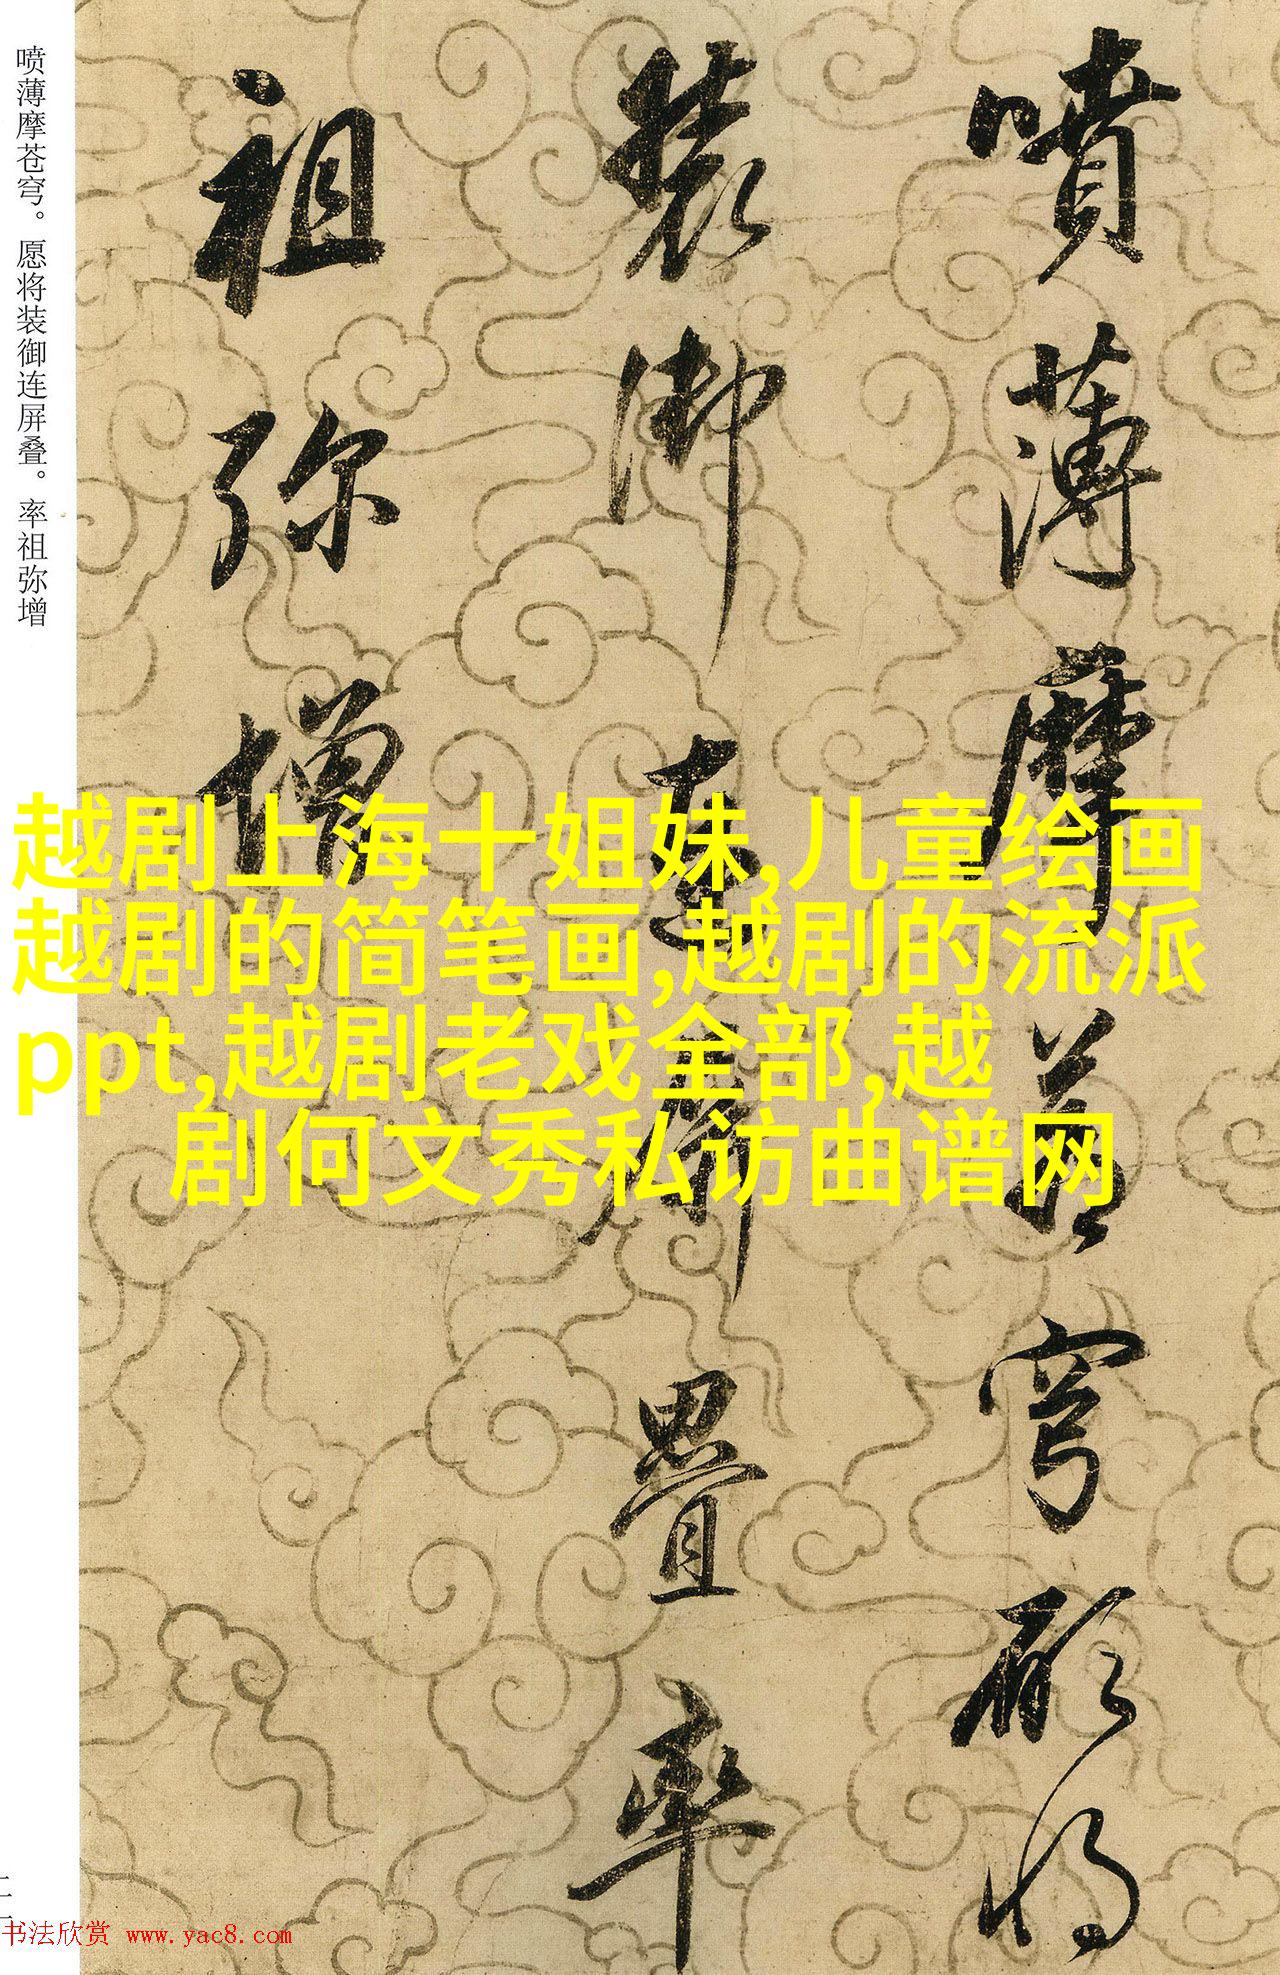 喷薄摩苍穹。愿将装御连屏叠。率祖弥增
噴薄摩蒼穹願將
裝御連屏疊率
祖弥增
越剧上海十姐妹,儿童绘画
越剧的简笔画,越剧的流派
ppt,越剧老戏全部,越
剧何文秀私访曲谱网
书法欣赏 www.yac8.com